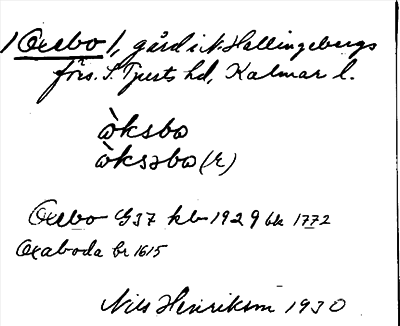 /Oxebo/, gård i N. Hallingebergs
förs. S. Tjusts hd, Kalmar l.
òksbo
òksəbo (Æ)
Oxebo G37 kb 1929 bk 1772
Oxaboda br 1615
Nils Henrikson 1930